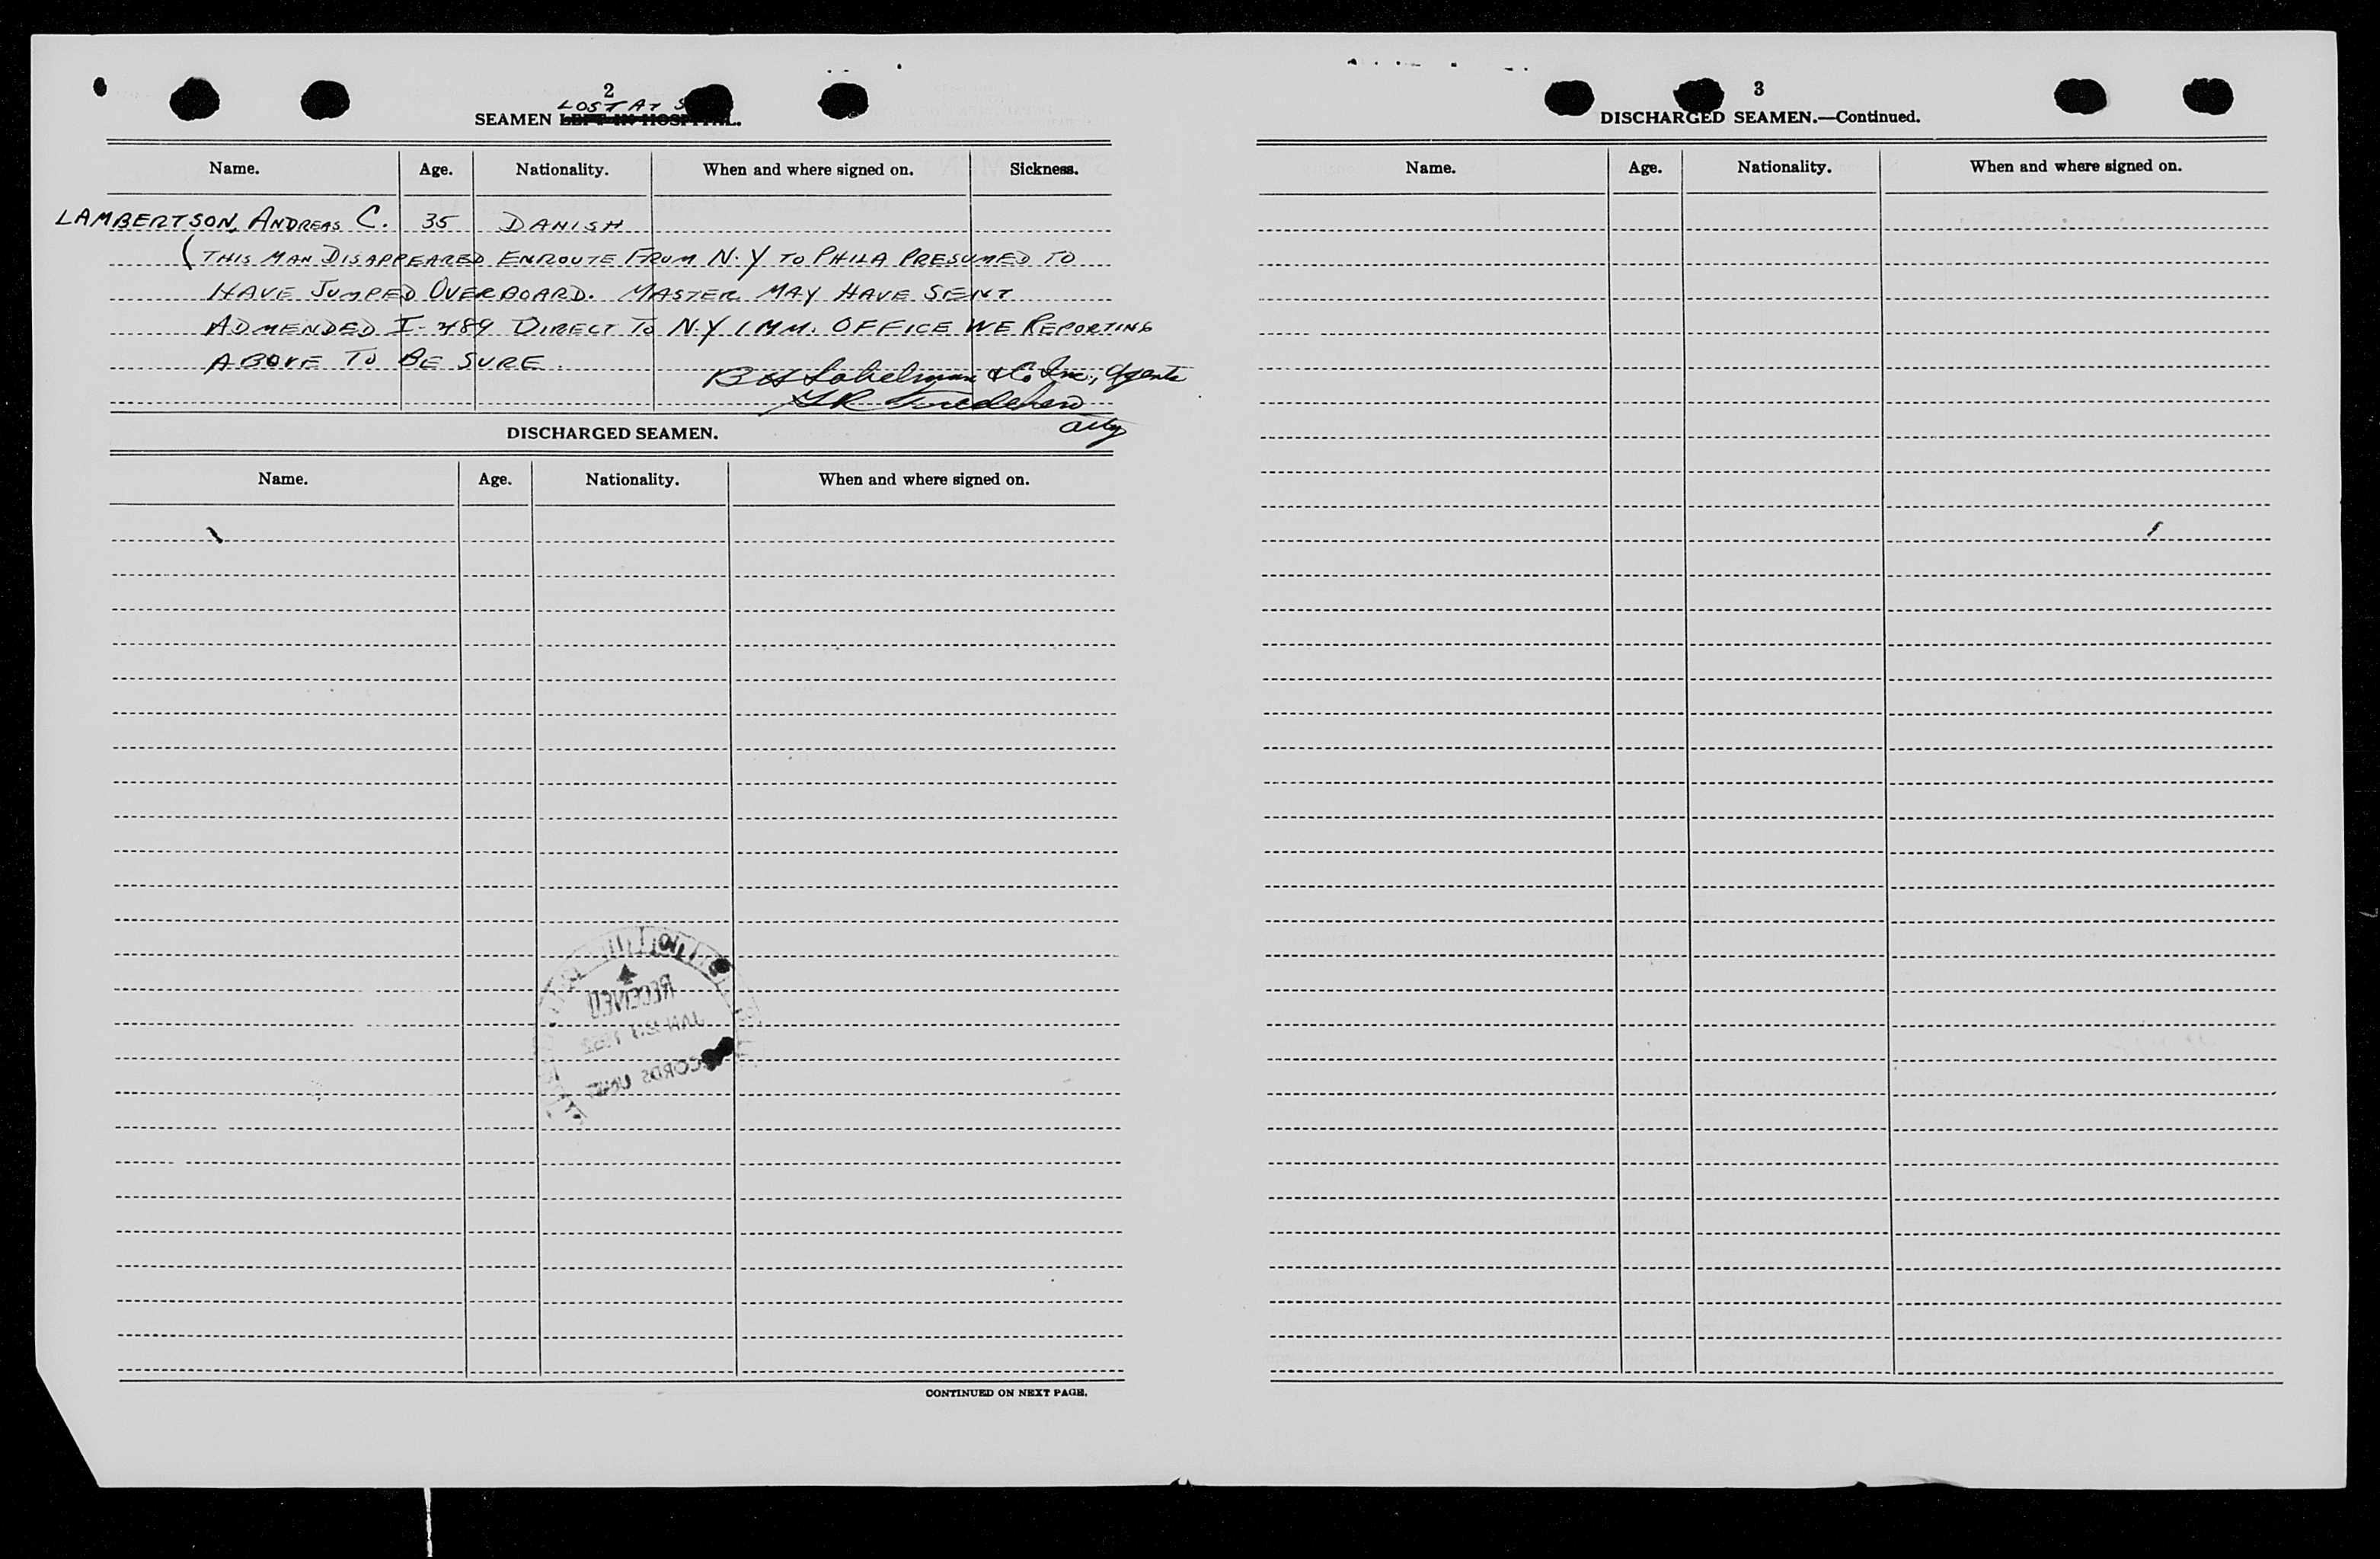 2
LOST AT S
SEAMEN LEFT IN HOSPITAL.
Name. Age. Nationality. When and where signed on. Sickness.
LAMBERTSON, ANDREAS C. 35 DANISH
(THIS MAN DISAPPEARED ENROUTE FROM N.Y TO PHILA PRESUMED TO
HAVE JUMPED OVERBOARD. MASTER MAY HAVE SENT
ADMENDED I-489 DIRECT TO N.Y IMM. OFFICE WE REPORTING
ABOVE TO BE SURE.
B H Sobelman & Co Inc., Agents
Atty
DISCHARGED SEAMEN.
Name. Age. Nationality. When and where signed on.
RECEIVED
JAN 23
RECORDS UNIT
CONTINUED ON NEXT PAGE.
3
DISCHARGED SEAMEN.—Continued.
Name. Age. Nationality. When and where signed on.